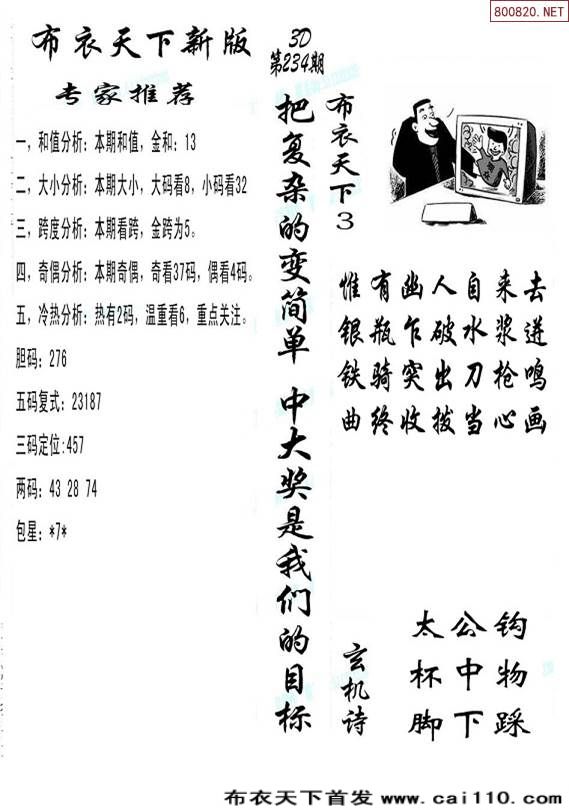 800820.NET
布衣天下新版
专家推荐
一，和值分析：本期和值，金和：13
二，大小分析：本期大小，大码看8，小码看32
三，跨度分析：本期看跨，金跨为5。
四，奇偶分析：本期奇偶，奇看37码，偶看4码。
五，冷热分析：热有2码，温重看6，重点关注。
胆码：276
五码复式：23187
三码定位:457
两码：43 28 74
包星：*7*
3D
第234期
把复杂的变简单 中大奖是我们的目标
布衣天下3
惟有幽人自来去
银瓶乍破水浆迸
铁骑突出刀枪鸣
曲终收拨当心画
玄机诗
太公钩
杯中物
脚下踩
布衣天下首发 www.cai110.com